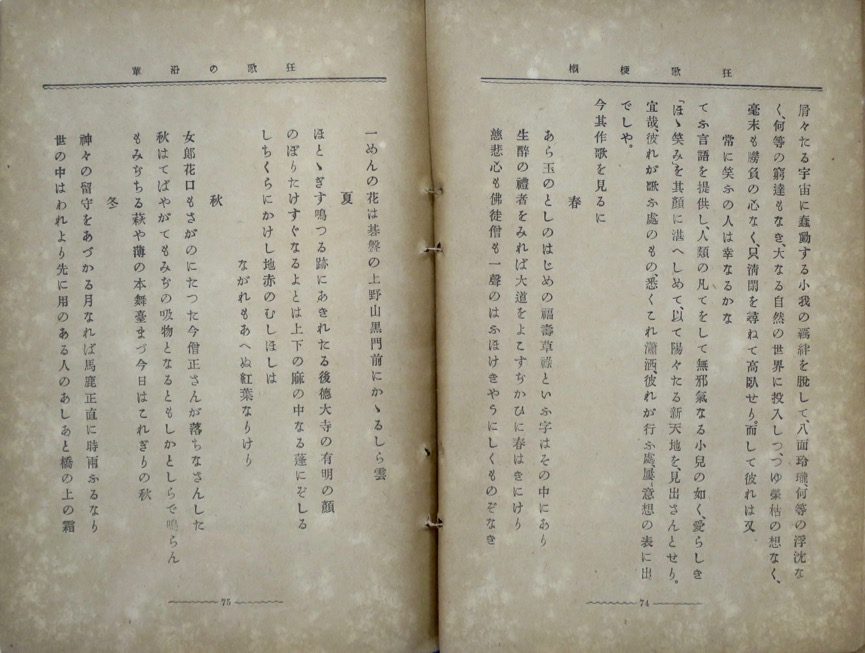 狂歌梗概
屑々たる宇宙に蠢動する小我の羈絆を脱して、八面玲瓏、何等の浮沈な
く、何等の窮達もなき、大なる自然の世界に投入しつ、つゆ榮枯の想なく、
毫末も勝負の心なく、只清閑を尋ねて高臥せり。而して彼れは又
常に笑ふの人は幸なるかな
てふ言語を提供し、人類の凡てをして無邪氣なる小兒の如く、愛らしき
「ほゝ笑み」を其顔に湛へしめて、以て陽々たる新天地を、見出さんとせり。
宜哉、彼れが歌ふ處のもの、悉くこれ瀟洒、彼れが行ふ處、屢〻意想の表に出
でしや。
今其作歌を見るに
春
あら玉のとしのはじめの福壽草祿といふ字はその中にあり
生醉の禮者をみれば大道をよこすぢかひに春はきにけり
慈悲心も佛徒僧も一聲のはふほけきやうにしくものぞなき
74
狂歌の沿革
一めんの花は碁盤の上野山黒門前にかゝるしら雲
夏
ほとゝぎす鳴つる跡にあきれたる後德大寺の有明の顔
のぼりたけすぐなるよとは上下の麻の中なる蓬にぞしる
しちくらにかけし地赤のむしほしは
ながれもあへぬ紅葉なりけり
秋
女郎花口もさがのにたつた今僧正さんが落ちなさんした
秋はてばやがてもみぢの吸物となるともしかとしらで鳴らん
もみぢちる萩や薄の本舞臺まづ今日はこれぎりの秋
冬
神々の留守をあづかる月なれば馬鹿正直に時雨ふるなり
世の中はわれより先に用のある人のあしあと橋の上の霜
75